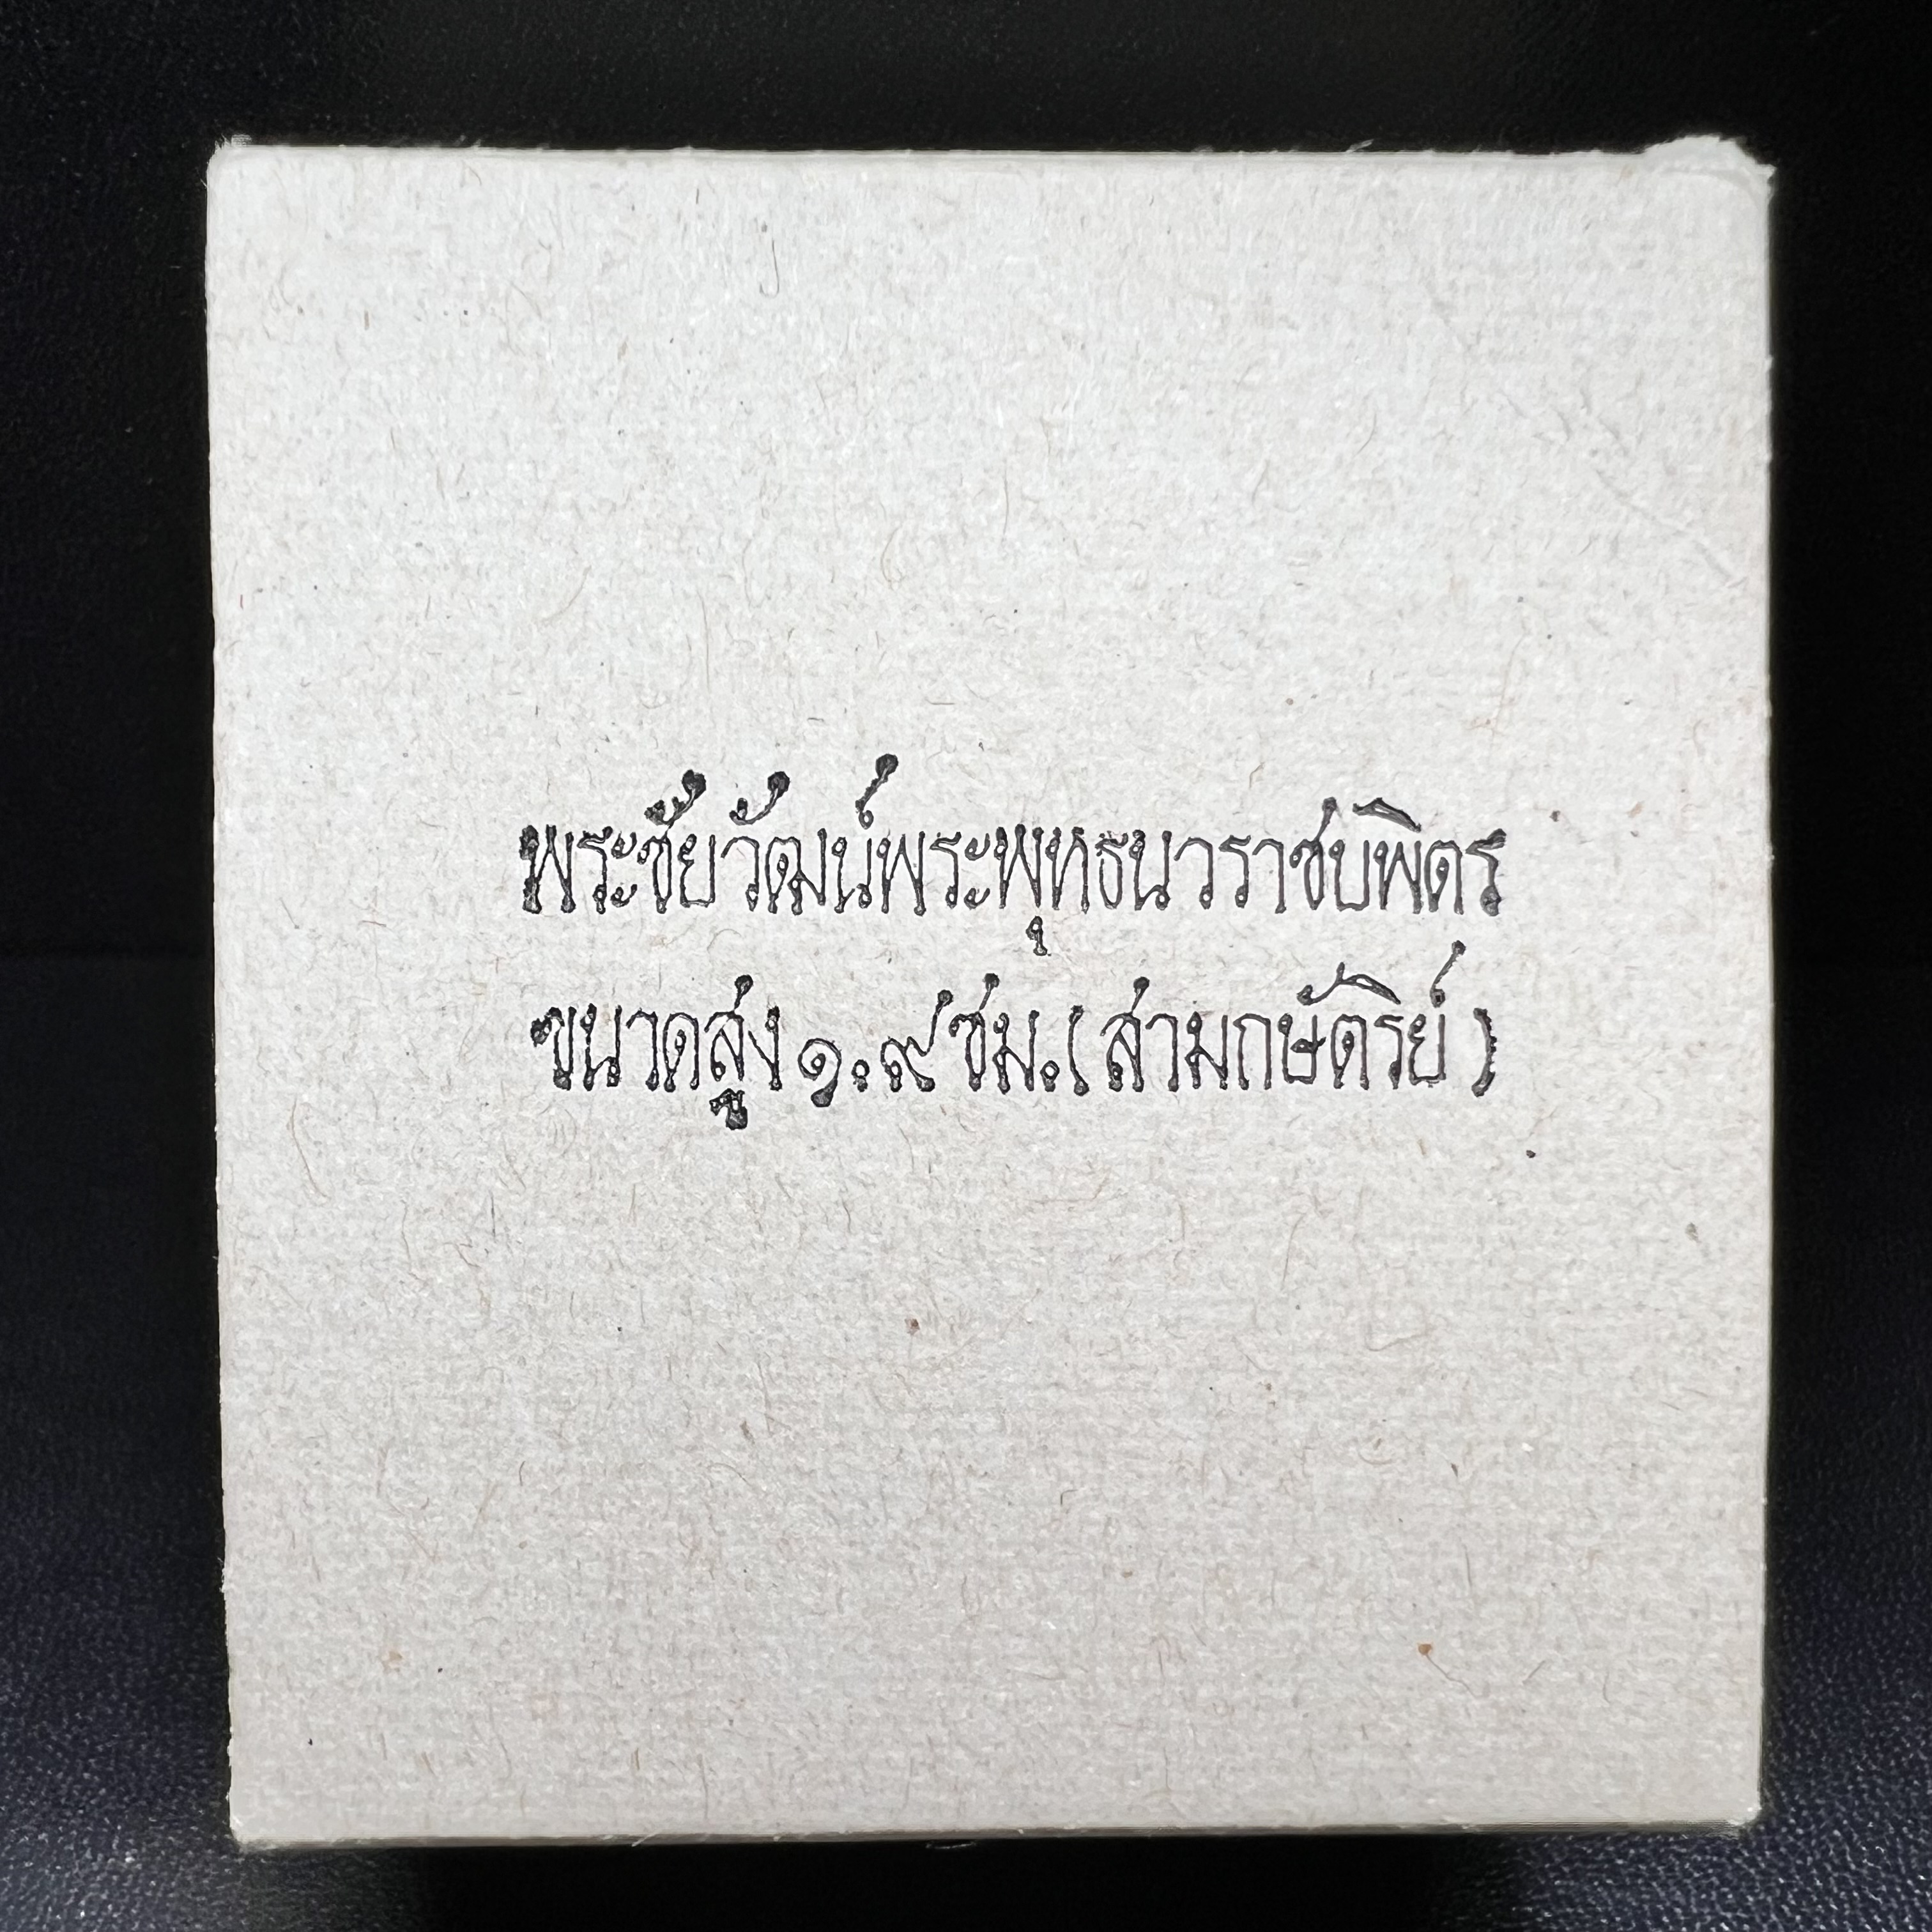 พระชัยวัฒน์พระพุทธนวราชบพิตร
ขนาดสูง ๑.๙ ซม. (สามกษัตริย์)